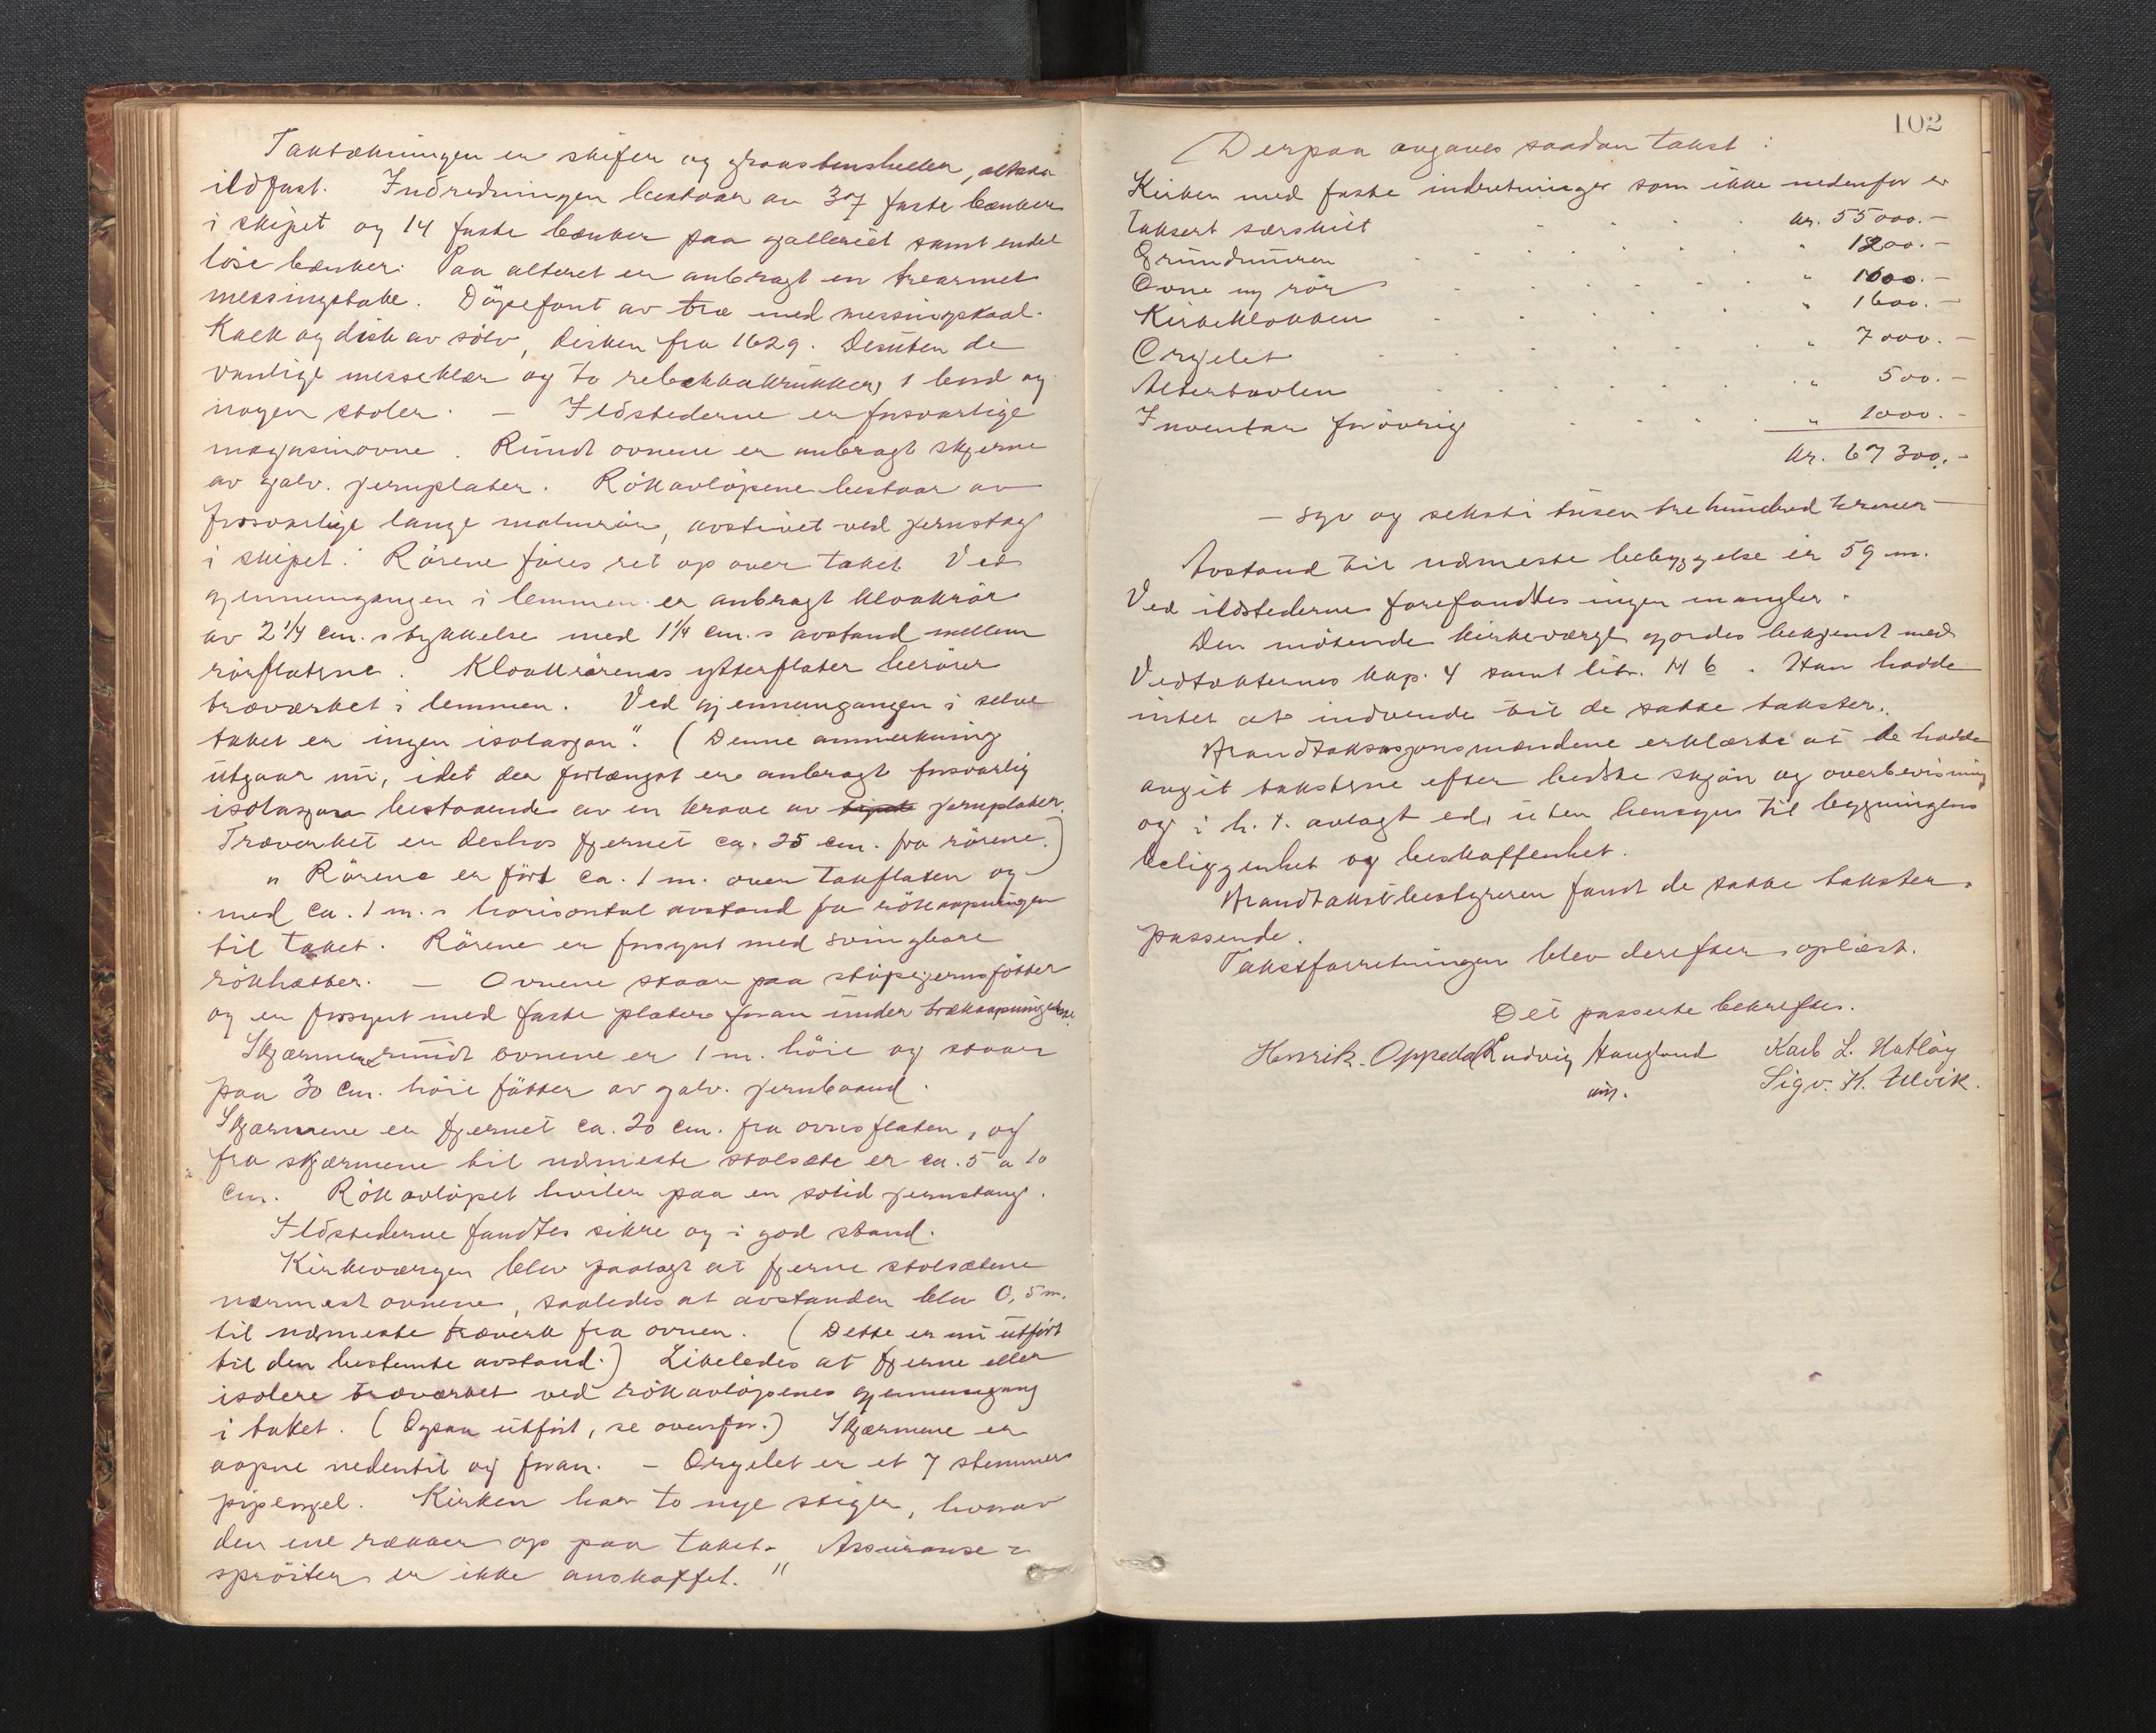 Taktækningen er skifer og graastensheller, altsaa
ildfast. Indredningen bestaar av 37 faste bænker
i skipet og 14 faste bænker paa galleriet samt endel
löse bænker. Paa alteret er anbragt en trearmet
messingstake. Döpefont av træ med messingskaal.
Kalk og disk av sölv, disken fra 1629. Desuten de
vanlige messeklær og to rebekkakrukker, 1 bord og
nogen stoler. — Ildstederne er forsvarlige
magasinovne. Rundt ovnene er anbragt skjerme
av galv. jernplater. Rökavlöpene bestaar av
forsvarlige lange malmrör, avstivet ved jernstag
i skipet. Rörene föres ret op over taket. Ved
gjennemgangen i lemmen er anbragt kloakrör
av 2 1/4 cm.s tykkelse med 1 1/4 cm.s avstand mellem
rörflatene. Kloakrörenes ytterflater berörer
træverket i lemmen. Ved gjennemgangen i selve
taket er ingen isolasjon". (Denne anmerkning
utgaar nu, idet der forlængst er anbragt forsvarlig
isolasjon bestaaende av en krave av jernplater.
Træverket er deshos fjernet ca. 25 cm. fra rörene.)
" Rörene er fört ca. 1 m. over takflaten og
med ca. 1 m.s horisontal avstand fra rökaapningen
til taket. Rörene er forsynt med svingbare
rökhætter. — Ovnene staar paa stöpejernsfötter
og er forsynt med faste plater foran under trækaapningene.
Skjærmene rundt ovnene er 1 m. höie og staar
paa 30 cm. höie fötter av galv. jernbaand.
Skjærmene er fjernet ca. 20 cm. fra ovnsflaten, og
fra skjærmene til nærmeste stolsæte er ca. 5 a 10
cm. Rökavlöpet hviler paa en solid jernstang.
Ildstederne fandtes sikre og i god stand.
Kirkeværgen blev paalagt at fjerne stolsætene
nærmest ovnene, saaledes at avstanden blev 0,5 m.
til nærmeste træverk fra ovnen. (Dette er nu utfört
til den bestemte avstand.) Likeledes at fjerne eller
isolere træverket ved rökavlöpenes gjennemgang
i taket. (Ogsaa utfört, se ovenfor.) Skjærmene er
aapne nedentil og foran. — Orgelet er et 7 stemmers
pipeorgel. Kirken har to nye stiger, hvorav
den ene rækker op paa taket. Assuranse=
spröiter er ikke anskaffet."
102
Derpaa avgaves saadan takst:
Kirken med faste indretninger som ikke nedenfor er
taksert særskilt kr. 55000.-
Grundmuren " 1200.-
Ovne og rör " 1000.-
Kirkeklokken " 1600.-
Orgelet " 7000.-
Altertavlen " 500.-
Inventar forövrig " 1000.-
kr. 67300.-
— syv og seksti tusen tre hundred kroner —
Avstand til nærmeste bebyggelse er 59 m.
Ved ildstederne forefandtes ingen mangler.
Den mötende kirkeværge gjordes bekjendt med
Vedtækternes kap. 4 samt litr. H 6. Han hadde
intet at indvende til de satte takster.
Brandtaksasjonsmændene erklærte at de hadde
avgit takstene efter bedste skjön og overbevisning
og i h. t. avlagt ed, uten hensyn til bygningens
beliggenhet og beskaffenhet.
Brandtakstbestyreren fandt de satte takster
passende.
Takstforretningen blev derefter oplæst.
Det passerte bekreftes.
Henrik Oppedal Ludvig Haugland Karl L. Hatlöy
Sigv. K. Ulvik.